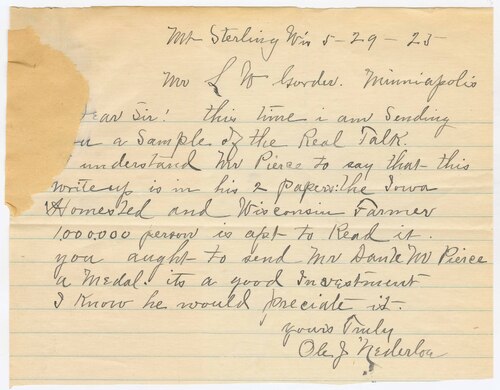 Mt Sterling Wis 5-29-25
Mr S W Gorder. Minniapolis
ear Sir! this time i am Sending
u a Sample of the Real Talk.
understand Mr Pierce to say that this
write up is in his 2 papers: the Iowa
Homested and Wisconsin Farmer
1,000.000 person is apt to Read it.
you aught to send Mr Dante Mr Pierce
a Medal. its a good Investment
I Know he would preciate it.
yours Truly
Ole J Nederloe